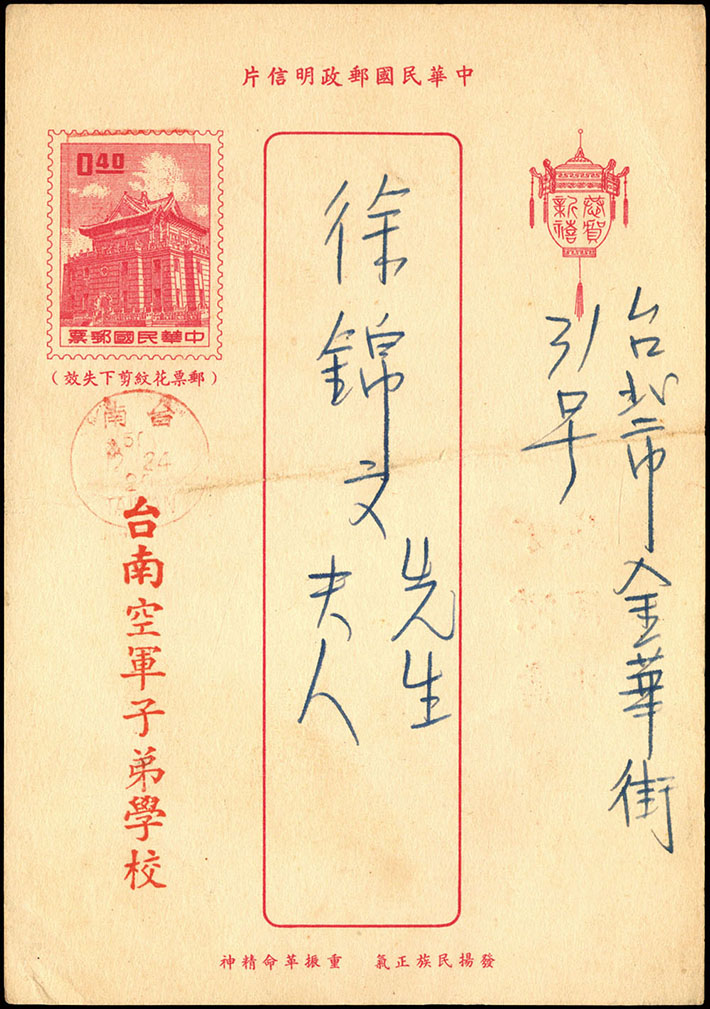 中華民國郵政明信片
恭賀
新禧
台北市金華街
31号
徐錦文先生
夫人
0.40
中華民國郵票
(郵票花紋剪下失效)
台南
50
24
台南空軍子弟學校
發揚民族正氣 重振革命精神